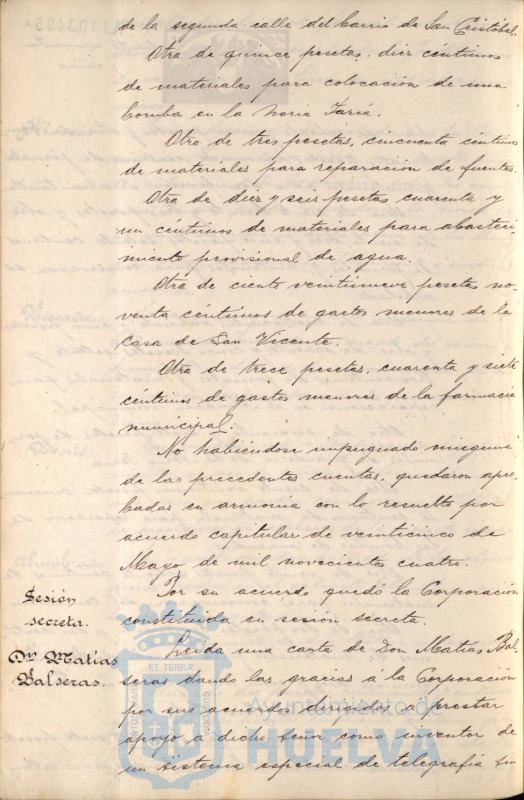 de la segunda calle del barrio de San Cristóbal.
Otra de quince pesetas, diez céntimos
de materiales para colocación de una
bomba en la Noria Faria.
Otra de tres pesetas, cincuenta céntimos
de materiales para reparación de fuentes.
Otra de diez y seis pesetas cuarenta y
un céntimos de materiales para abasteci-
miento provisional de agua.
Otra de ciento veintinueve pesetas no-
venta céntimos de gastos menores de la
Casa de San Vicente.
Otra de trece pesetas, cuarenta y siete
céntimos de gastos menores de la farmacia
municipal.
No habiéndose impugnado ninguna
de las precedentes cuentas, quedaron apro-
badas en armonía con lo resuelto por
acuerdo capitular de veinticinco de
Mayo de mil novecientos cuatro.
Sesión
secreta.
Por su acuerdo quedó la Corporación
constituida en sesión secreta.
Dn. Matías
Balseras.
Leída una carta de Don Matías Bal-
seras dando las gracias á la Corporación
por sus acuerdos dirigidos a prestar
apoyo a dicho Señor como inventor de
un sistema especial de telegrafía sin
ET TERRÆ
Ayuntamiento de
HUELVA